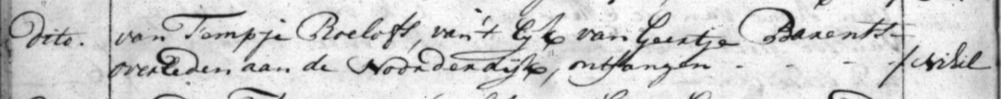 dito. van Tempje Roeloft, van't lijk van Geertje Barents
overleden aan de Noorderdijk, ontfangen - - - - / Nihil